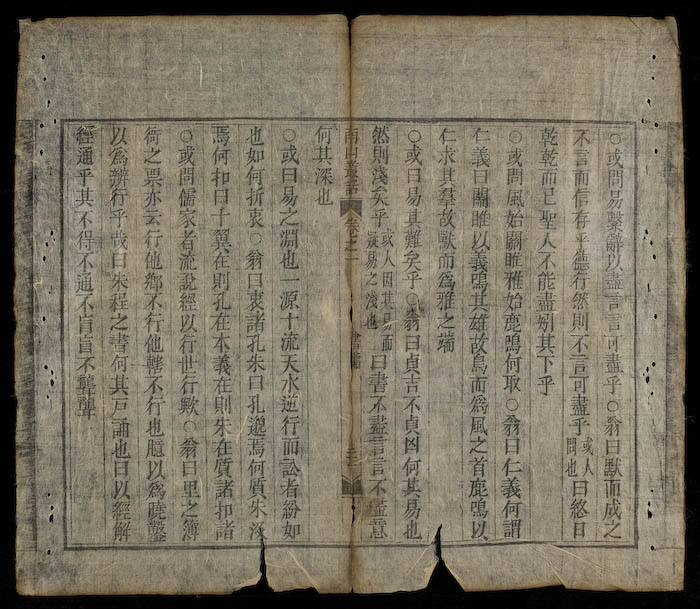 ○或問易繫辭以盡言言可盡乎○翁曰默而成之
不言而信存乎德行然則不言可盡乎或人問也曰終日
乾乾而已聖人不能盡矧其下乎
○或問風始關雎雅始鹿鳴何取○翁曰仁義何謂
仁義曰關雎以義鳴其雄故鳥而為風之首鹿鳴以
仁求其羣故獸而為雅之端
○或曰易其難矣乎○翁曰貞吉不貞凶何其易也
然則淺矣乎或人因其易而疑易之淺也曰書不盡言言不盡意
卷之一
何其深也
○或曰易之淵也一源十流天水逆行而訟者紛如
也如何折衷○翁曰衷諸孔朱曰孔邈焉何質朱
焉何扣曰十翼在則孔在本義在則朱在質諸扣諸
○或問儒家者流說經以行世行歟○翁曰里之簿
衙之票亦云行他鄉不行他轄不行也臆以為鑿
以為辨行乎哉曰朱程之書何其戸誦也曰以經解
經通乎其不得不通不盲盲不聾聾